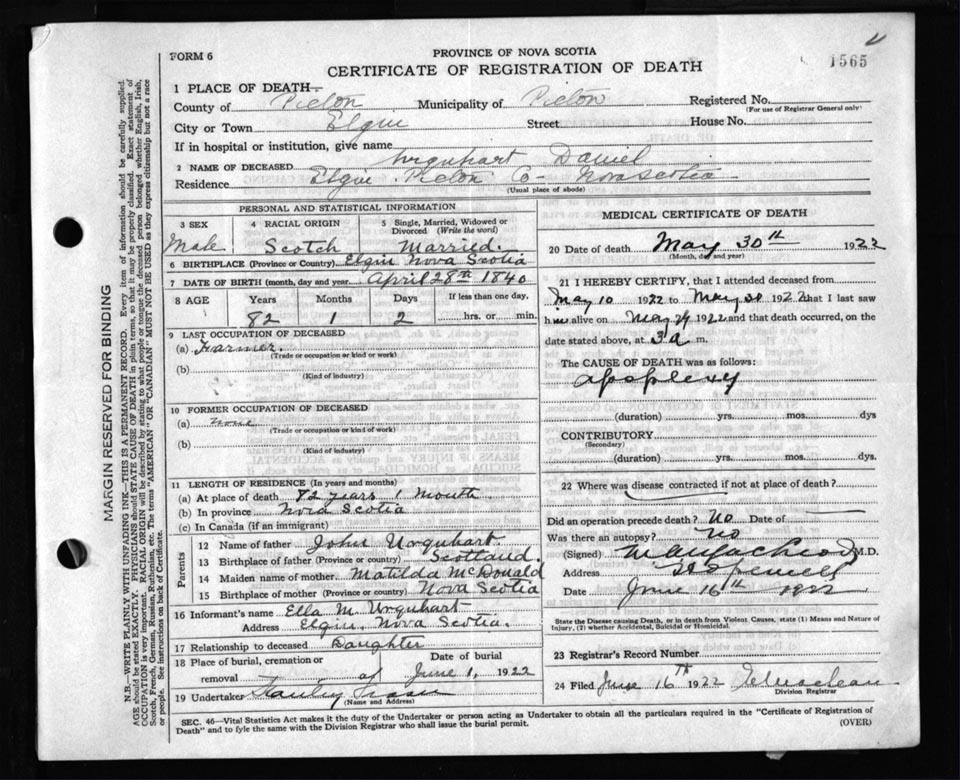 FORM 6
PROVINCE OF NOVA SCOTIA
CERTIFICATE OF REGISTRATION OF DEATH
1565
1 PLACE OF DEATH—
County of Pictou Municipality of Pictou Registered No.
(For use of Registrar General only)
City or Town Elgin Street House No.
If in hospital or institution, give name
2 NAME OF DECEASED Urquhart Daniel
Residence Elgin Pictou Co- Nova Scotia
(Usual place of abode)
PERSONAL AND STATISTICAL INFORMATION
3 SEX
Male
4 RACIAL ORIGIN
Scotch
5 Single, Married, Widowed or Divorced (Write the word)
Married.
6 BIRTHPLACE (Province or Country) Elgin Nova Scotia
7 DATE OF BIRTH (month, day and year) April 28th 1840
8 AGE Years Months Days If less than one day,
82 1 2 hrs. or min.
9 LAST OCCUPATION OF DECEASED
(a) Farmer
(Trade or occupation or kind or work)
(b)
(Kind of industry)
10 FORMER OCCUPATION OF DECEASED
(a) None
(Trade or occupation or kind of work)
(b)
(Kind of industry)
11 LENGTH OF RESIDENCE (In years and months)
(a) At place of death 82 years 1 Month
(b) In province Nova Scotia
(c) In Canada (if an immigrant)
Parents
12 Name of father John Urquhart
13 Birthplace of father (Province or country) Scotland.
14 Maiden name of mother Matilda McDonald
15 Birthplace of mother (Province or country) Nova Scotia
16 Informant's name Ella M Urquhart
Address Elgin, Nova Scotia.
17 Relationship to deceased Daughter
18 Place of burial, cremation or removal Date of burial
June 1, 1922
19 Undertaker Stanley Fraser
(Name and Address)
MEDICAL CERTIFICATE OF DEATH
20 Date of death May 30th 1922
(Month, day and year)
21 I HEREBY CERTIFY, that I attended deceased from
May 10 1922 to May 30 1922 that I last saw
him alive on May 29 1922 and that death occurred, on
date stated above, at 3 a m.
The CAUSE OF DEATH was as follows:
apoplexy
(duration) yrs. mos. dys
CONTRIBUTORY
(Secondary)
(duration) yrs. mos. dys.
22 Where was disease contracted if not at place of death?
Did an operation precede death? No Date of
Was there an autopsy? No
(Signed) M.D.
Address
Date June 16th 1922
State the Disease causing Death, or in death from Violent Causes, state (1) Means and Nature of
Injury, (2) whether Accidental, Suicidal or Homicidal.
23 Registrar's Record Number
24 Filed June 16th 1922
Division Registrar
SEC. 46—Vital Statistics Act makes it the duty of the Undertaker or person acting as Undertaker to obtain all the particulars required in the "Certificate of Registration of
Death" and to fyle the same with the Division Registrar who shall issue the burial permit.
(OVER)
MARGIN RESERVED FOR BINDING
N.B.—WRITE PLAINLY WITH UNFADING INK—THIS IS A PERMANENT RECORD. Every item of information should be carefully supplied.
AGE should be stated EXACTLY. PHYSICIANS should STATE CAUSE OF DEATH in plain terms, so that it may be properly classified. Exact statement of
OCCUPATION is very important. RACIAL ORIGIN will be described by stating to what people or tongue the deceased person belonged whether English, Irish,
Scotch, French, German, Russian, Ruthenian, etc. The terms "AMERICAN" or "CANADIAN" MUST NOT BE USED as they express citizenship but not a race
or people. See instructions on back of Certificate.